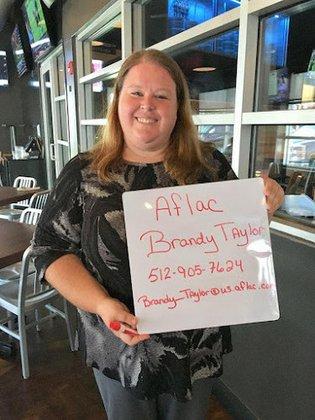 Aflac
Brandy Taylor
512-905-7624
Brandy_Taylor@us.aflac.com